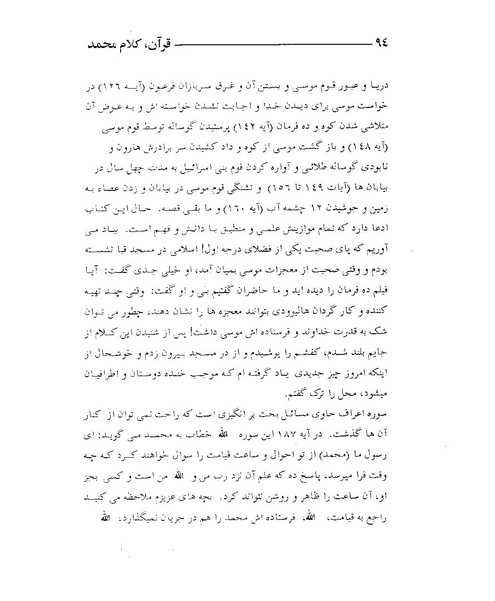 ۹٤ قرآن، کلام محمد
دریا و عبور قوم موسی و بستن آن و غرق سربازان فرعون (آیه ۱۲۶) در
خواست موسی برای دیدن خدا و اجابت نشدن خواسته اش و به عوض آن
متلاشی شدن کوه و ده فرمان (آیه ۱۴۲) پرستیدن گوساله توسط قوم موسی
(آیه ۱۴۸) و باز گشت موسی از کوه و داد کشیدن سر برادرش هارون و
نابودی گوساله طلائی و آواره کردن قوم بنی اسرائیل به مدت چهل سال در
بیابان ها (آیات ۱۴۹ تا ۱۵۶) و تشنگی قوم موسی در بیابان و زدن عصاء به
زمین و جوشیدن ۱۲ چشمه آب (آیه ۱۶۰) و ما بقی قصه. حال این کتاب
ادعا دارد که تمام موازینش علمی و منطبق با دانش و فهم است. بیاد می
آوریم که پای صحبت یکی از فضلای درجه اول! اسلامی در مسجد قبا نشسته
بودم و وقتی صحبت از معجزات موسی بمیان آمد، او خیلی جدی گفت: آیا
فیلم ده فرمان را دیده اید و ما حاضران گفتیم بلی و او گفت: وقتی چند تهیه
کننده و کار گردان هالیوودی بتوانند معجزه ها را نشان دهند، چطور می توان
شک به قدرت خداوند و فرستاده اش موسی داشت! پس از شنیدن این کلام از
جایم بلند شدم، کفشم را پوشیدم و از در مسجد بیرون زدم و خوشحال از
اینکه امروز چیز جدیدی یاد گرفته ام که موجب خنده دوستان و اطرافیان
میشود، محل را ترک گفتم.
سوره اعراف حاوی مسائل بحث بر انگیزی است که راحت نمی توان از کنار
آن ها گذشت. در آیه ۱۸۷ این سوره الله خطاب به محمد می گوید: ای
رسول ما (محمد) از تو احوال و ساعت قیامت را سوال خواهند کرد که چه
وقت فرا میرسد، پاسخ ده که علم آن نزد رب من و الله من است و کسی بجز
او، آن ساعت را ظاهر و روشن نتواند کرد. بچه های عزیزم ملاحظه می کنید
راجع به قیامت، الله، فرستاده اش محمد را هم در جریان نمیگذارد، الله